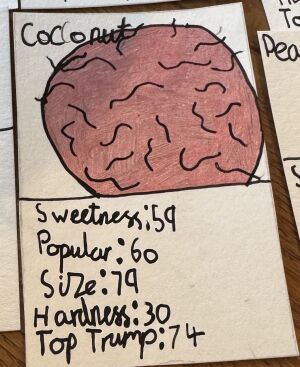 Coconut
Sweetness:59
Popular:60
Size:79
Hardness:30
Top Trump:74
Pea